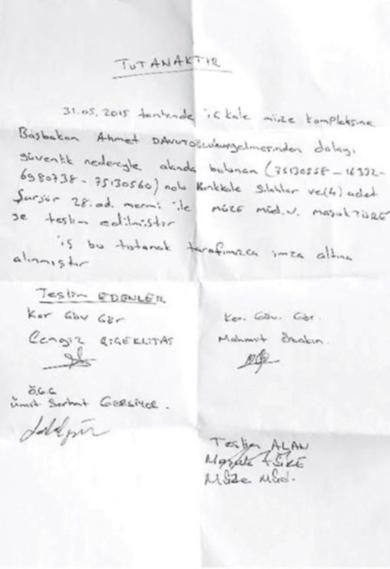 TUTANAKTIR
31.05.2015 tarihinde iç kale müze kompleksine
Başbakan Ahmet DAVUTOĞLU gelmesinden dolayı
güvenlik nedeniyle alanda bulunan (75130558-16332-
6980738-75130560) nolu Kırıkkale Silahlar ve (4) adet
Şarjör 28.ad. mermi ile MÜZE MÜD.V.
ye teslim edilmiştir
iş bu tutanak tarafımızca imza altına
alınmıştır
Teslim EDENLER
Kor Güv Gör
Cengiz
Kor. Güv. Gör.
Mahmut
Ö.G.G
Ümit Serhat
Teslim ALAN
Müze Müd.